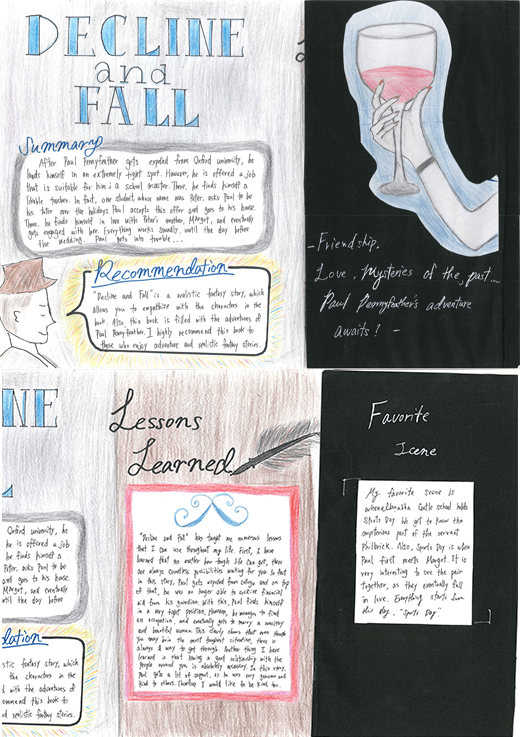 DECLINE
and
FALL
Summary
After Paul Pennyfeather gets expelled from Oxford university, he
finds himself in an extremely tight spot. However, he is offered a job
that is suitable for him: a school master. There, he finds himself a
likable teacher. In fact, one student whose name was Peter, asks Paul to be
his tutor over the holidays. Paul accepts this offer and goes to his house.
There, he finds himself in love with Peter's mother, Margot, and eventually
gets engaged with her. Everything works soundly, until the day before
the wedding. Paul gets into trouble...
Recommendation
"Decline and Fall" is a realistic fantasy story, which
allows you to empathize with the characters in the
book. Also, this book is filled with the adventures of
Paul Pennyfeather. I highly recommend this book to
those who enjoy adventure and realistic fantasy stories.
-Friendship.
Love, Mysteries of the past...
Paul Pennyfeather's adventure
awaits! -
NE
L
Oxford university, he
he is offered a job
he finds himself a
Peter, asks Paul to be
and goes to his house.
Margot, and eventually
until the day before
lation
stic fantasy story, which
the characters in the
d with the adventures of
commend this book to
nd realistic fantasy stories.
Lessons
Learned
"Decline and Fall" has taught me numerous lessons
that I can use throughout my life. First, I have
learned that no matter how tough life can get, there
are always countless possibilities waiting for you. In fact
in this story, Paul gets expelled from college and on top
of that, he was no longer able to receive financial
aid from his guardian. With this, Paul finds himself
in a very tight position. However, he manages to find
an occupation, and eventually gets to marry a wealthy
and beautiful woman. This clearly shows that even though
you may be in the most toughest situation, there is
always a way to get through. Another thing I have
learned is that having a good relationship with the
people around you is absolutely necessary. In this story,
Paul gets a lot of support, as he was very generous and
kind to others. Therefore I would like to be kind too.
Favorite
Scene
My favorite scene is
where Llanabba Castle school holds
Sports Day. We get to know the
mysterious past of the servant
Philbrick. Also, Sports Day is when
Paul first meets Margot. It is
very interesting to see the pair
together, as they eventually fall
in love. Everything starts from
this day, "Sports Day"